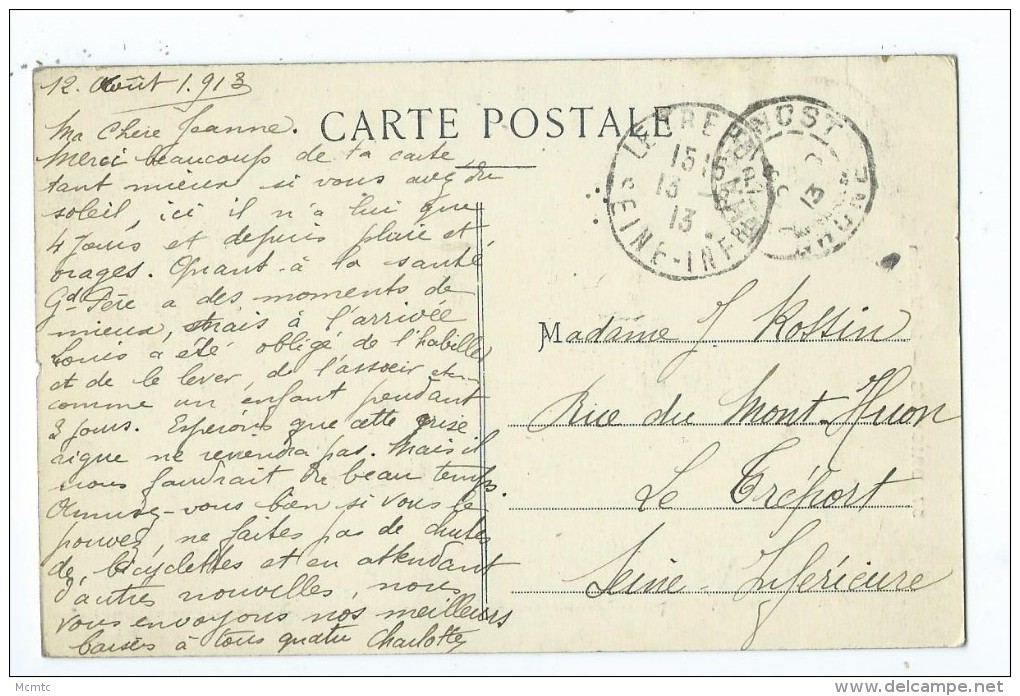 12. Août 1.913
Ma Chère Jeanne.
Merci beaucoup de ta carte,
tant mieux si vous avez du
soleil, ici il n'a lui que
4 jours et depuis pluie et
orages. Quant à la santé
Gd Père a des moments de
mieux, mais à l'arrivée
Louis a été obligé de l'habiller
et de le lever, de l'associr etc
comme un enfant pendant
3 jours. Espérons que cette crise
aigue ne reviendra pas. Mais il
nous faudrait du beau temps.
Amusez-vous bien si vous le
pouvez, ne faites pas de chutes
de bicyclettes et en attendant
d'autres nouvelles, nous
vous envoyons nos meilleurs
baisers à tous quatre Charlotte
CARTE POSTALE
LE TREPORT
13
13
SEINE-INFRE
13
Madame J. Rossin
Rue du Mont-Huon
Le Tréport
Seine-Inférieure
Mcmtc
www.delcampe.net